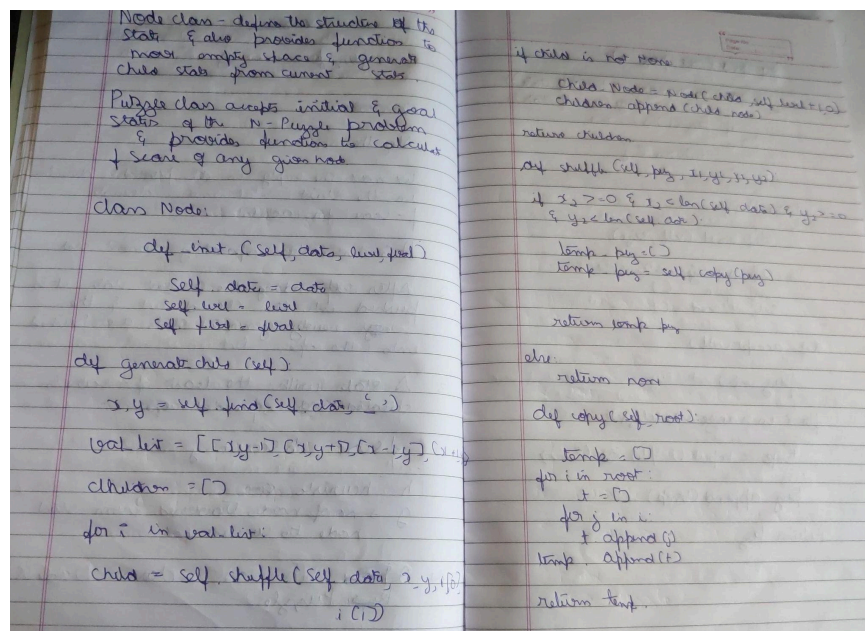 Node class - defines the structure of the
state & also provides function to
move empty space & generate
child state from current state.
Puzzle class accepts initial & goal
states of the N-Puzzle problem
& provides function to calculate
f score of any given node
class Node:
def _init_ (self, data, level, fval)
self. data = data
self. level = level
self. fval = fval
def generate child (self)
x, y = self. find (self. data, '_')
val_list = [[x,y-1], [x,y+1], [x-1,y], [x+1,
children = []
for i in val-list:
child = self. shuffle (self. data, x, y, i[0]
i[1])
if child is not None
child_Node = Node (child, self. level+1, 0)
children. append (child node)
return children
def shuffle (self, puz, x1, y1, x2, y2)
if x2 >= 0 & x2 < len(self data) & y2 >= 0
& y2 < len(self data):
temp_puz = []
temp puz = self. copy (puz)
return temp puz
else:
return none
def copy (self, root):
temp = []
for i in root:
t = []
for j in i:
t append (j)
temp. append (t)
return temp.